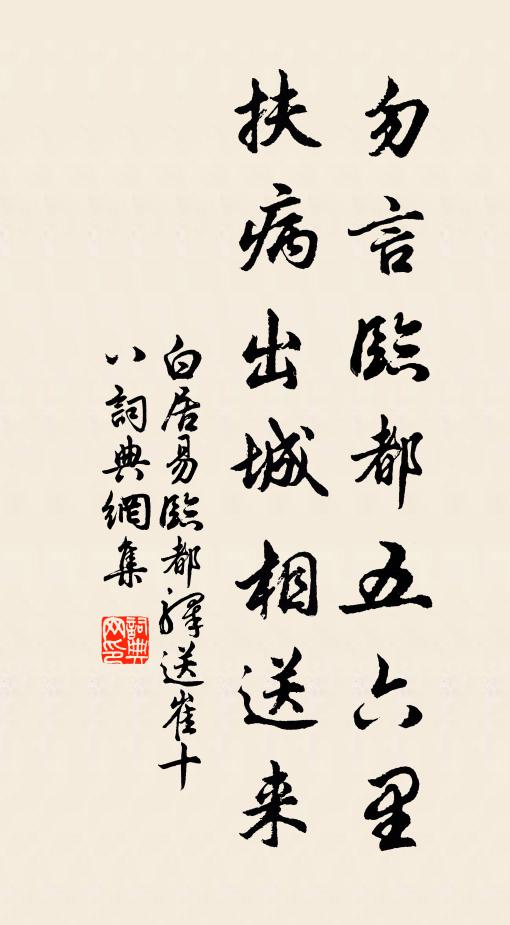 勿言臨都五六里
扶病出城相送来
白居易臨都驛送崔十
八詞典網集
詞典
网印